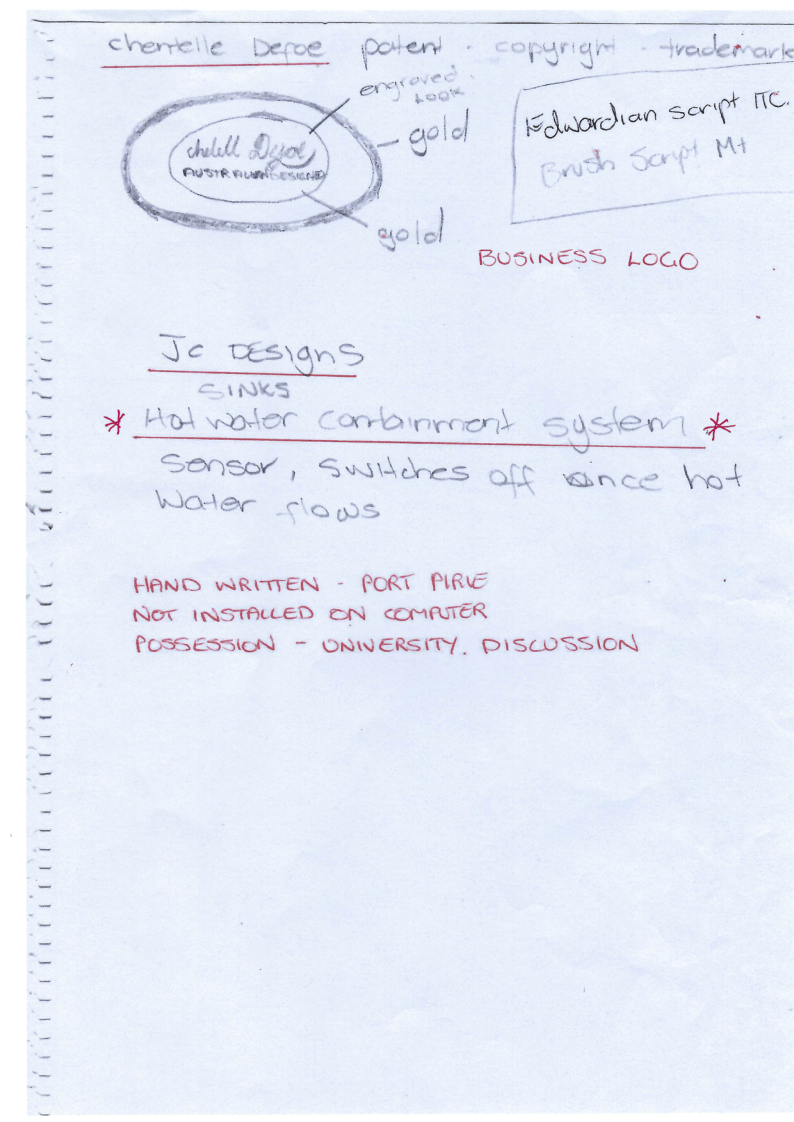 chentelle Defoe patent · copyright · trademark
engraved
Look
gold
Edwardian Script ITC.
Brush Script Mt
Defoe
AUSTRALIAN DESIGNED
gold
BUSINESS LOGO
Jc DESIgnS
SINKS
* Hot water containment system *
Sensor, switches off once hot
Water flows
HAND WRITTEN - PORT PIRIE
NOT INSTALLED ON COMPUTER
POSSESSION - UNIVERSITY. DISCUSSION